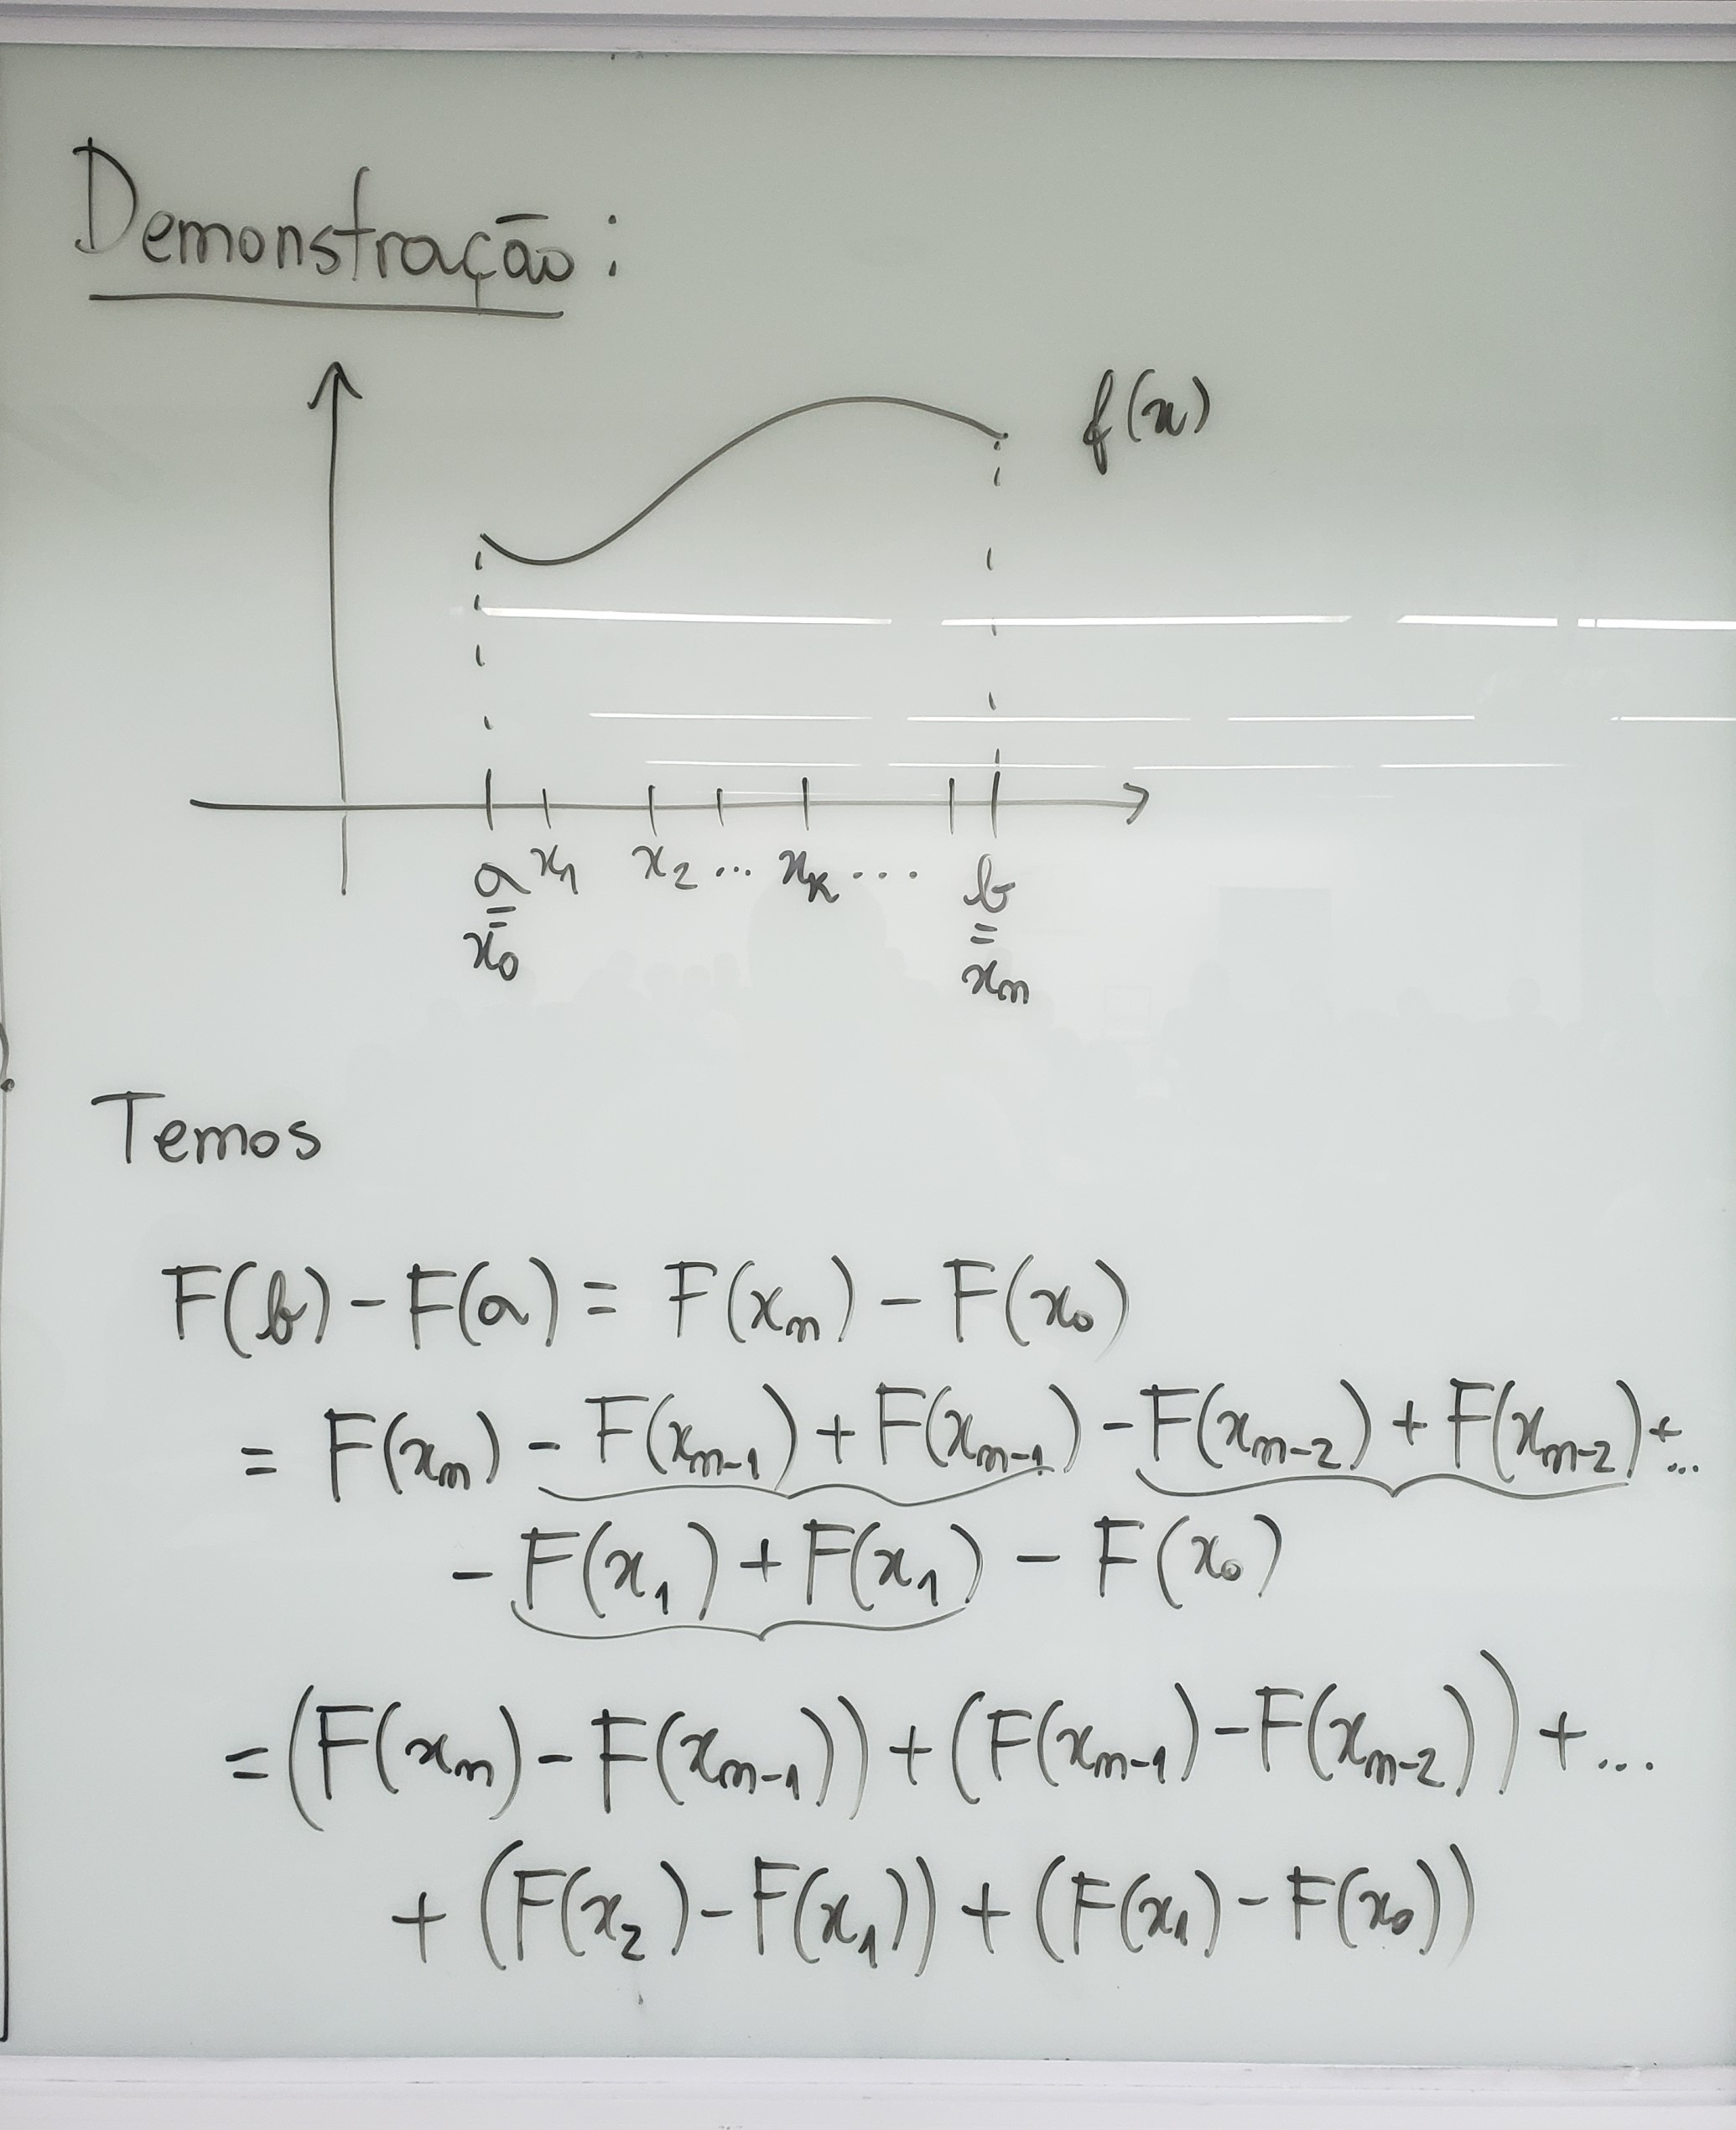 Demonstração:
f(x)
a x₁ x₂ ... xₖ ... b
= =
x₀ xₙ
Temos
F(b) - F(a) = F(xₙ) - F(x₀)
= F(xₙ) - F(xₙ₋₁) + F(xₙ₋₁) - F(xₙ₋₂) + F(xₙ₋₂) + ...
- F(x₁) + F(x₁) - F(x₀)
= (F(xₙ) - F(xₙ₋₁)) + (F(xₙ₋₁) - F(xₙ₋₂)) + ...
+ (F(x₂) - F(x₁)) + (F(x₁) - F(x₀))